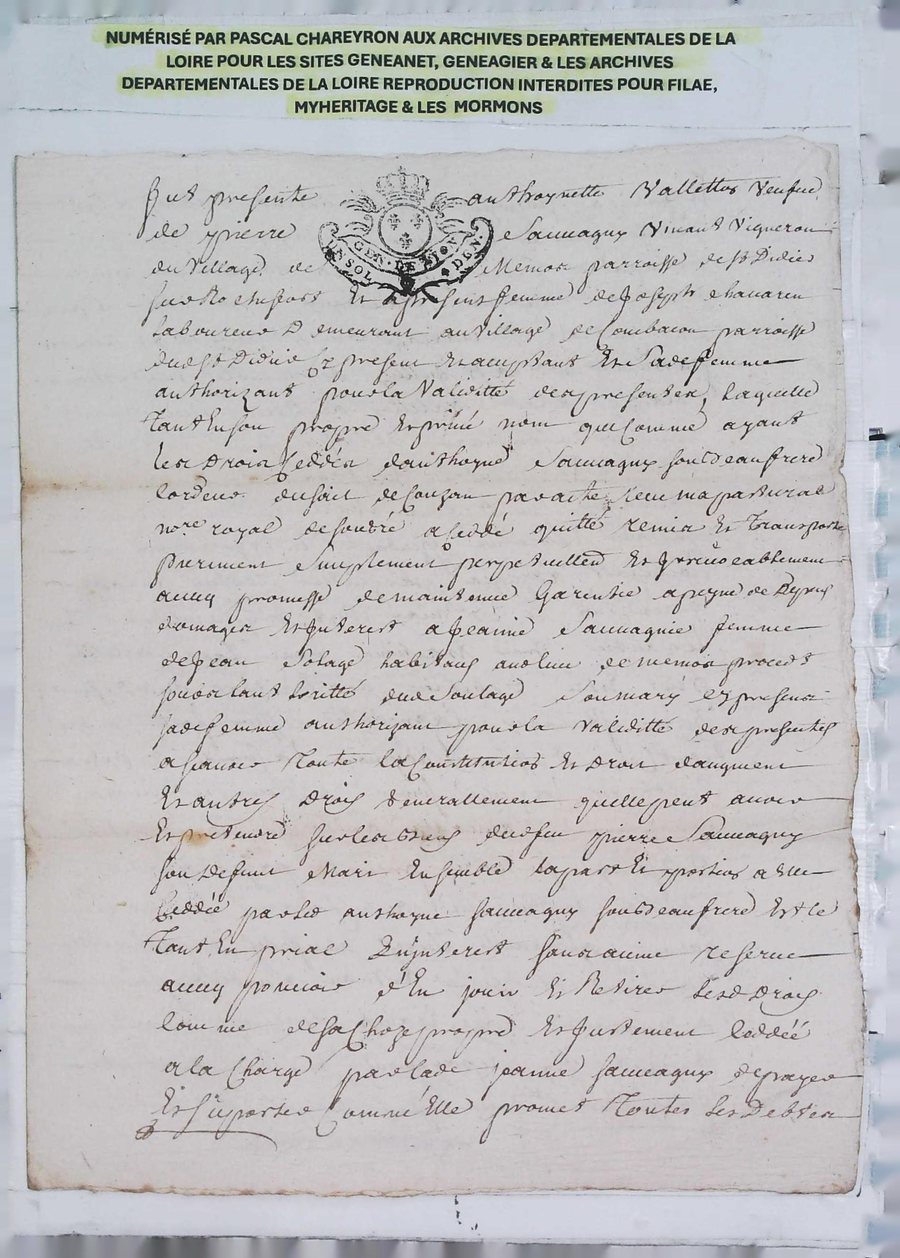 NUMÉRISÉ PAR PASCAL CHAREYRON AUX ARCHIVES DEPARTEMENTALES DE LA
LOIRE POUR LES SITES GENEANET, GENEAGIER & LES ARCHIVES
DEPARTEMENTALES DE LA LOIRE REPRODUCTION INTERDITES POUR FILAE,
MYHERITAGE & LES MORMONS
fut presente anthoynette Vallettes Veufue
de pierre Sauuagny Viuant Vigneron
du Village de parroisse de St Didier
sur Rochefort Et a present femme de Joseph
laboureur Demeurant au Village de parroisse
dud St Didier Icy present Et acceptant Et Sade femme
authorizant pour la Validitté des presentes, laquelle
Tant En son propre Et priué nom que Comme ayant
les Drois Ceddés d'anthoyne Sauuagny son beaufrere
par acte receu
nore royal a Ceddé quitté remis Et Transporté
purement Simplement perpetuellem Et Irreuocablement
auecq promesse de maintenue Garentie a peyne de
domages Et Interest a Jeanne Sauuagnie femme
de Jean habitans au lieu de
de l'authoritté dud Son mary Icy present
sade femme authorizant pour la Validitté des presentes
a scauoir Toute la Constitution Et Droit d'augment
Et autres Drois Generallement quelle peut auoir
Et pretendre sur les biens dud feu pierre Sauuagny
son Defunt Mari Ensemble la part Et portion a elle
Ceddée par led anthoyne Sauuagny son beaufrere Et le
Tant En prial qu'interest sans aucune reserue
auecq pouuoir d'En jouir Et Retirer lesd Drois
Comme de sa Choze propre Et Justement Ceddéé
a la Charge par lade jeanne Sauuagny de payer
Et Suporter Comme Elle promet Toutes les Debtes